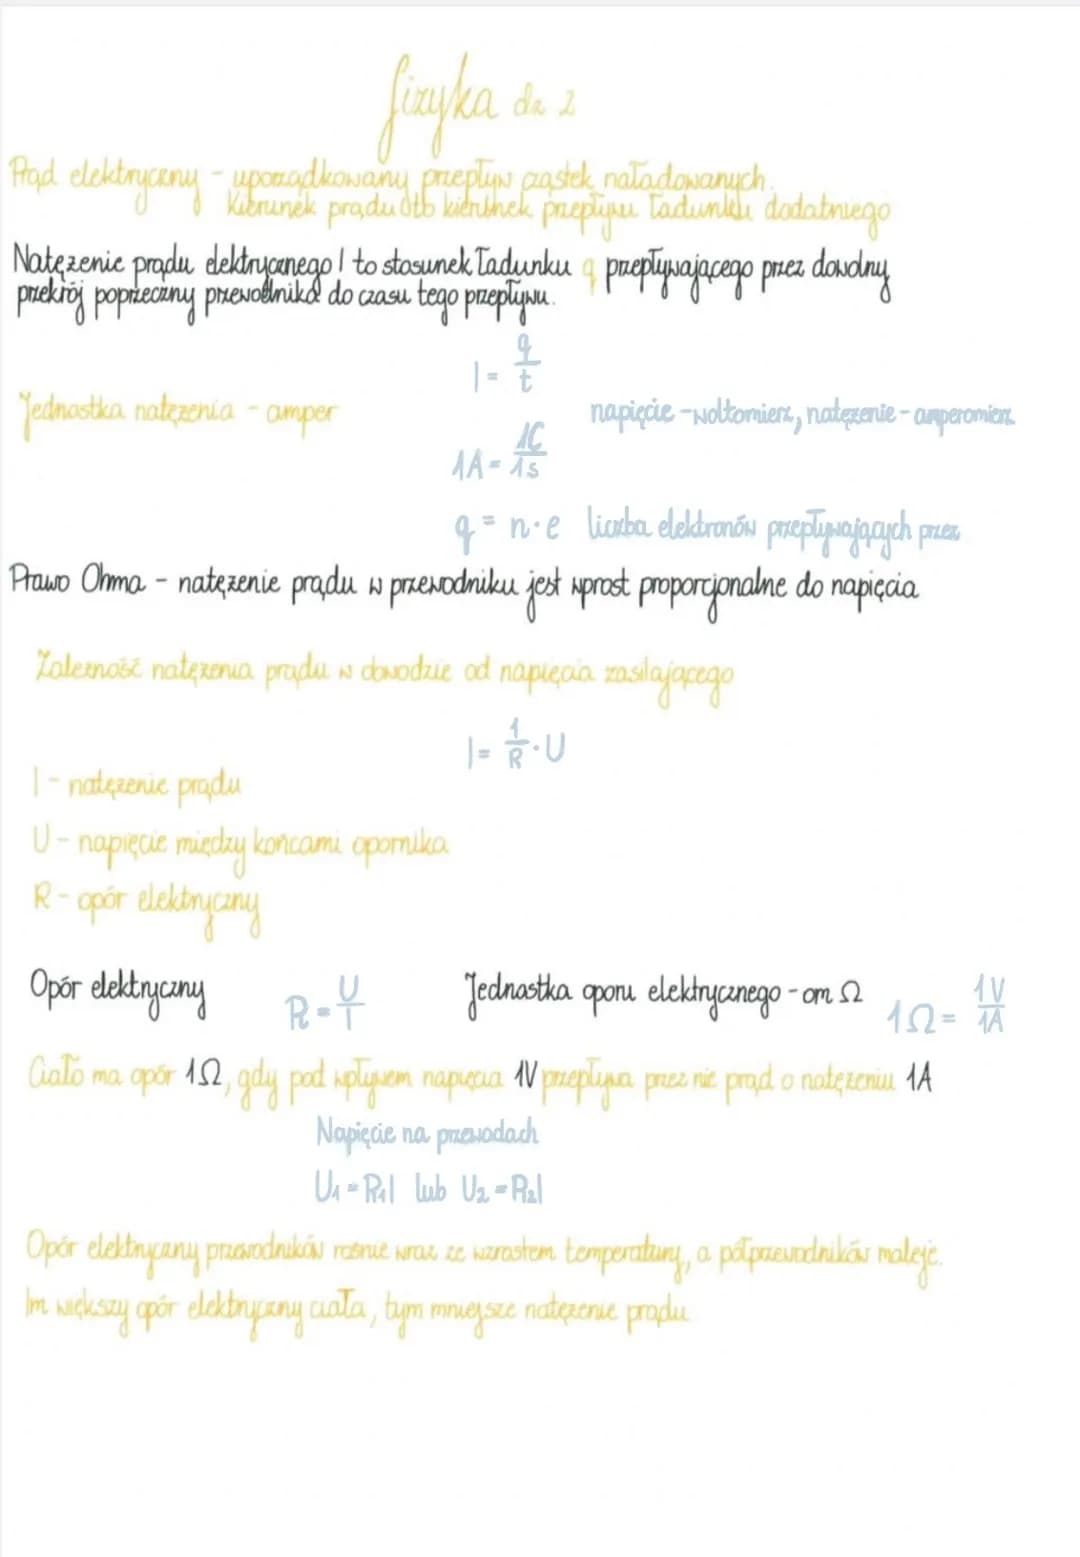 fizyka dz 2
Prąd elektryczny - uporządkowany przepływ cząstek naładowanych.
Kierunek prądu to kierunek przepływu ładunku dodatniego
Natężenie prądu elektrycznego I to stosunek ładunku q przepływającego przez dowolny
przekrój poprzeczny przewodnika do czasu tego przepływu.
I = q/t
Jednostka natężenia - amper
napięcie - woltomierz, natężenie - amperomierz
1A = 1C/1s
q = n·e liczba elektronów przepływających przez
Prawo Ohma - natężenie prądu w przewodniku jest wprost proporcjonalne do napięcia
Zależność natężenia prądu w obwodzie od napięcia zasilającego
I = 1/R · U
I - natężenie prądu
U - napięcie między końcami opornika
R - opór elektryczny
Opór elektryczny R = U/I Jednostka oporu elektrycznego - om Ω 1Ω = 1V/1A
Ciało ma opór 1Ω, gdy pod wpływem napięcia 1V przepływa przez nie prąd o natężeniu 1A
Napięcie na przewodach
U₁ = R₁I lub U₂ = R₂I
Opór elektryczny przewodników rośnie wraz ze wzrostem temperatury, a półprzewodników maleje.
Im większy opór elektryczny ciała, tym mniejsze natężenie prądu